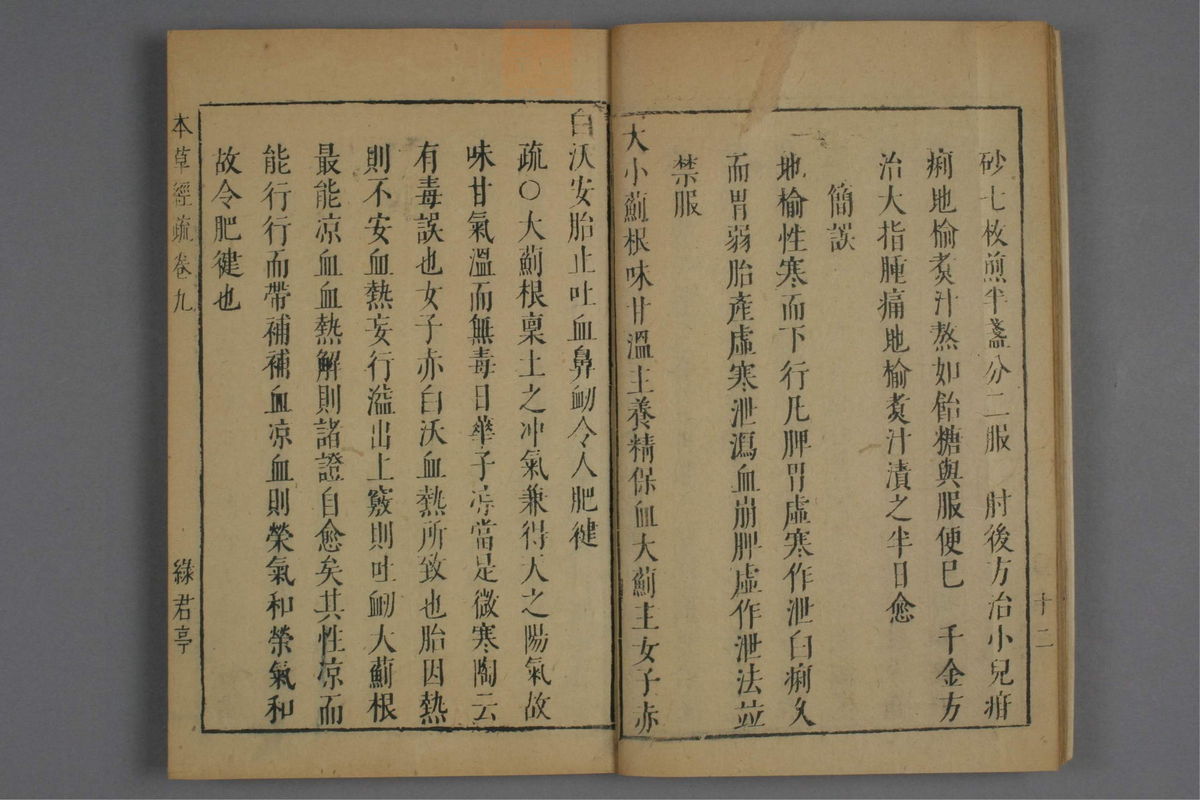 十二
砂七枚煎半盞分二服　肘後方治小兒疳
痢地榆煮汁熬如飴糖與服便已　千金方
治大指腫痛地榆煮汁漬之半日愈
簡誤
地榆性寒而下行凡脾胃虛寒作泄白痢久
而胃弱胎產虛寒泄瀉血崩脾虛作泄法並
禁服
大小薊根味甘溫主養精保血大薊主女子赤
白沃安胎止吐血鼻衂令人肥健
疏○大薊根稟土之冲氣兼得天之陽氣故
味甘氣溫而無毒日華子凉當是微寒陶云
有毒誤也女子赤白沃血熱所致也胎因熱
則不安血熱妄行溢出上竅則吐衂大薊根
最能凉血血熱解則諸證自愈矣其性凉而
能行行而帶補補血凉血則榮氣和榮氣和
故令肥健也
本草經疏卷九
綠君亭